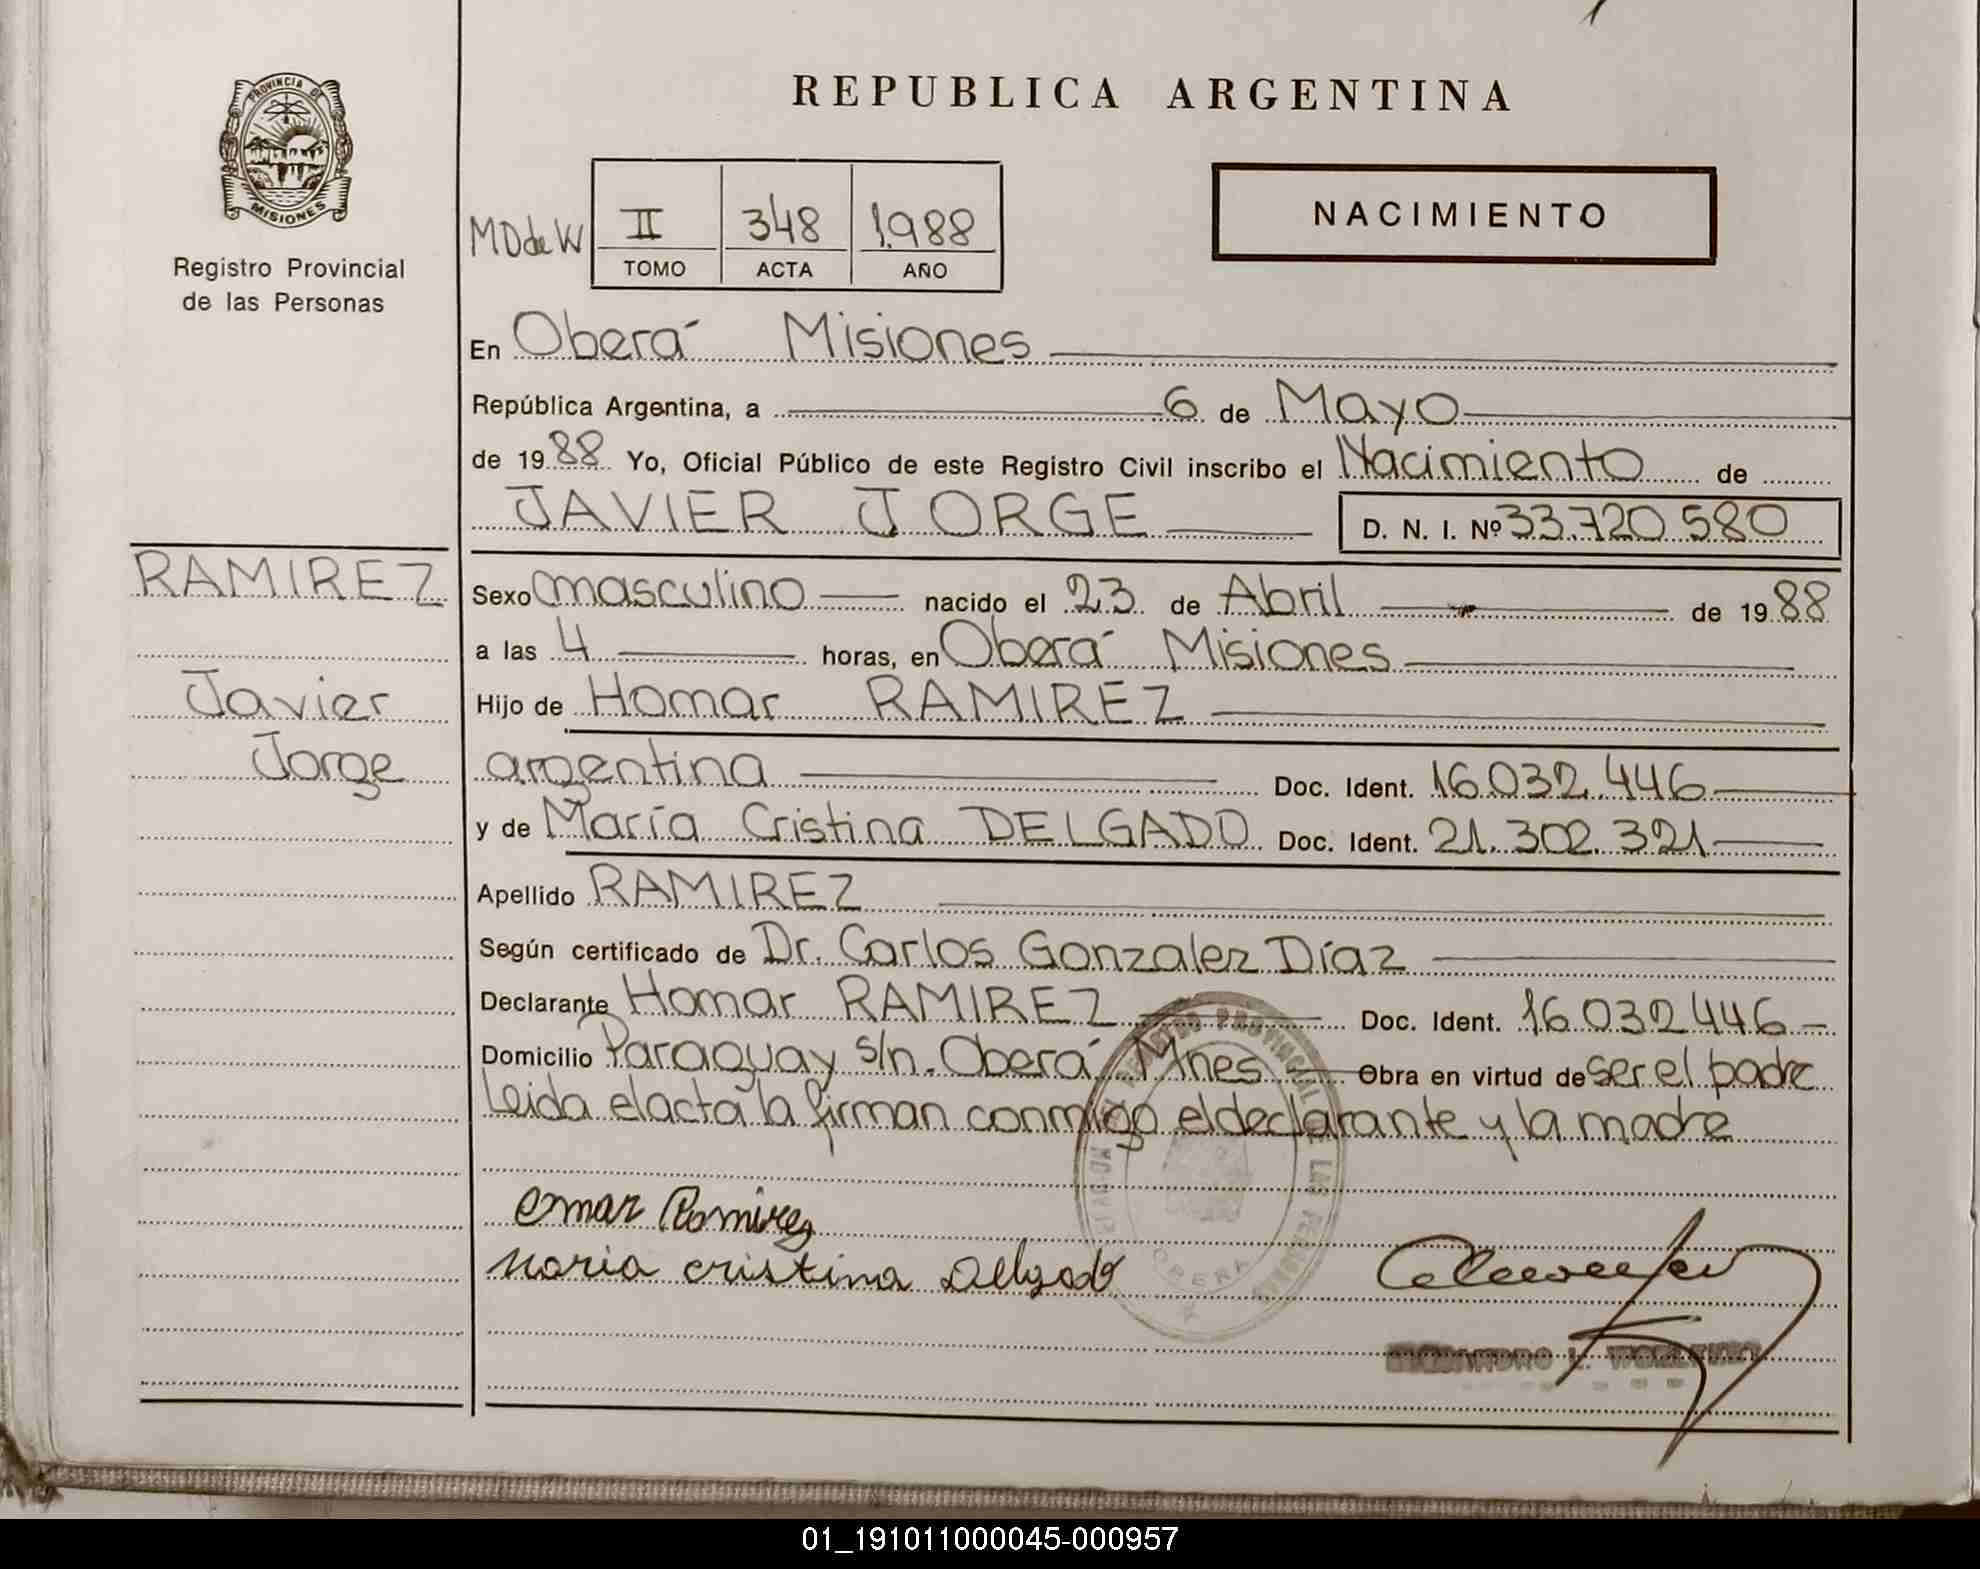 PROVINCIA DE
MISIONES
Registro Provincial
de las Personas
REPUBLICA ARGENTINA
NACIMIENTO
MD de W
II 348 1988
TOMO ACTA AÑO
En Oberá Misiones
República Argentina, a 6 de Mayo
de 1988 Yo, Oficial Público de este Registro Civil inscribo el Nacimiento de
JAVIER JORGE D. N. I. Nº 33.720.580
RAMIREZ
Javier
Jorge
Sexo masculino nacido el 23 de Abril de 1988
a las 4 horas, en Oberá Misiones
Hijo de Homar RAMIREZ
argentina Doc. Ident. 16.032.446
y de María Cristina DELGADO Doc. Ident. 21.302.321
Apellido RAMIREZ
Según certificado de Dr. Carlos Gonzalez Díaz
Declarante Homar RAMIREZ Doc. Ident. 16.032.446
Domicilio Paraguay s/n. Oberá Mnes Obra en virtud de ser el padre
Leida el acta la firman conmigo el declarante y la madre
REGISTRO PROVINCIAL LAS
OBERA
Omar Ramirez
Maria cristina Delgado
01_191011000045-000957